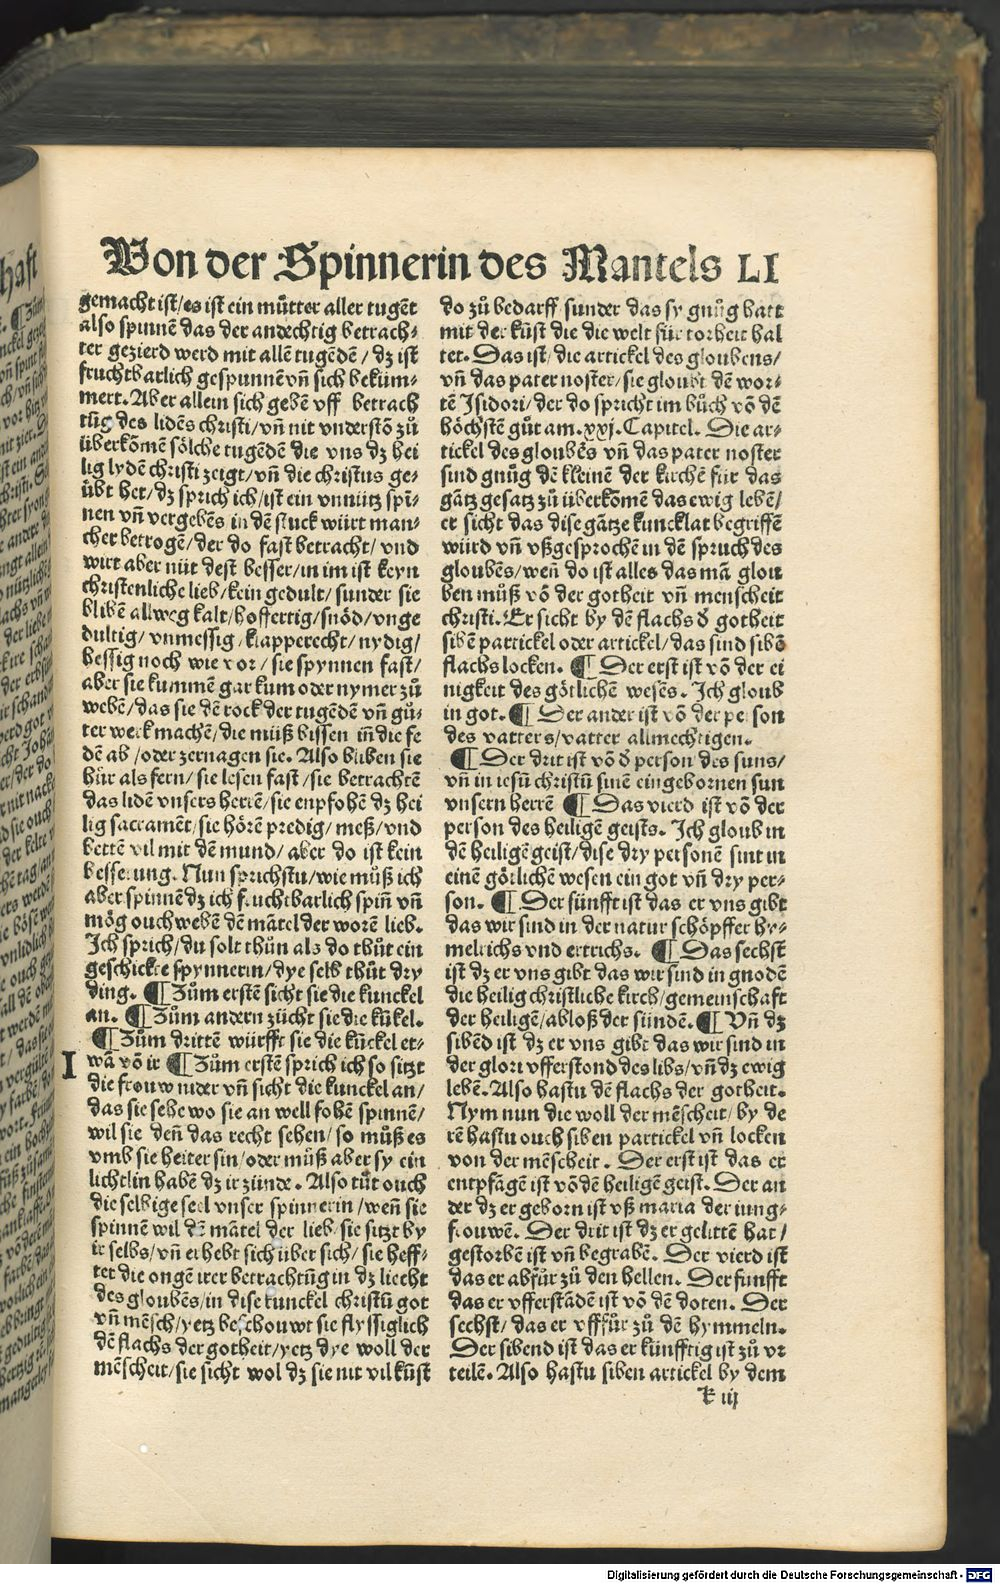 Von der Spinnerin des Mantels LI
gemacht ist/es ist ein můtter aller tugēt
also spinnē das der andechtig betrach-
ter gezierd werd mit allē tugēdē/dz ist
fruchtbarlich gespunnē vñ sich beküm-
mert. Aber allein sich gebē vff betrach
tūg des lidēs christi/vñ nit vnderstō zů
überkōmē sölche tugēdē die vns dz hei
lig lydē christi zeigt/vñ die christus ge-
übt het/dz sprich ich/ist ein vnnütz spī-
nen vñ vergebēs in dē stuck würt man-
cher betrogē/der do fast betracht/vnd
wirt aber nüt dest besser/in im ist keyn
christenliche lieb/kein gedult/sunder sie
blibē allweg kalt/hoffertig/snöd/vnge
dultig/vnmessig/klapperecht/nydig/
hessig noch wie vor/sie spynnen fast/
aber sie kummē gar kum oder nymer zů
webē/das sie dē rock der tugēdē vñ gů-
ter werk machē/die müß bissen in̄ die fe
dē ab/oder zernagen sie. Also bliben sie
hür als fern/sie lesen fast/sie betrachtē
das lidē vnsers herrē/sie enpfohē dz hei
lig sacramēt/sie hörē predig/meß/vnd
bettē vil mit dē mund/aber do ist kein
besserung. Nun sprichstu/wie můß ich
aber spinnē dz ich fruchtbarlich spiñ vñ
mög ouch webē dē mātel der worē lieb.
Ich sprich/du solt thůn als do thůt ein
geschickte spynnerin/dye selb thůt dry
ding. ¶ Zům erstē sicht sie die kunckel
an. ¶ Zům andern zücht sie die kūkel.
¶ Zům drittē würfft sie die kūckel et-
wā vō ir ¶ Zům erstē sprich ich so sitzt
I
die frouw nider vñ sicht die kunckel an/
das sie sehe wo sie an well fohē spinnē/
wil sie deñ das recht sehen/so můß es
vmb sie heiter sin/oder můß aber sy ein
lichtlin habē dz ir zünde. Also tůt ouch
die selbige seel vnser spinnerin/weñ sie
spinnē wil dē mātel der lieb sie sitzt by
ir selbs/vñ erhebt sich über sich/sie heff-
tet die ougē irer betrachtūg in dz liecht
des gloubēs/in dise kunckel christū got
vñ mēsch/yetz beschouwt sie flyssiglich
dē flachs der gotheit/yetz dye woll der
mēscheit/sie sicht wol dz sie nit vil kūst
do zů bedarff sunder das sy gnůg hatt
mit der kūst die die welt für torheit hal
tet. Das ist/die artickel des gloubens/
vñ das pater noster/sie gloubt dē wor-
tē Isidori/der do spricht im bůch vō dē
höchstē gůt am .xxj. Capitel. Die ar-
tickel des gloubēs vñ das pater noster
sind gnůg dē kleinē der kirchē für das
gātz gesatz zů überkōmē das ewig lebē/
er sicht das dise gātze kuncklat begriffē
würd vñ vßgesprochē in dē spruch des
gloubēs/weñ do ist alles das mā glou
ben můß vō der gotheit vñ menscheit
christi. Er sicht by dē flachs ð gotheit
sibē partickel oder artickel/das sind sibē
flachs locken. ¶ Der erst ist vō der ei
nigkeit des götlichē wesēs. Ich gloub
in got. ¶ Der ander ist vō der person
des vatters/vatter allmechtigen.
¶ Der drit ist vō ð person des suns/
vñ in iesū christū sinē eingebornen sun
vnsern herrē ¶ Das vierd ist vō der
person des heiligē geists. Ich gloub in
dē heiligē geist/dise dry personē sint in
einē götlichē wesen ein got vñ dry per-
son. ¶ Der fünfft ist das er vns gibt
das wir sind in der natur schöpffer hy-
melrichs vnd ertrichs. ¶ Das sechst
ist dz er vns gibt das wir sind in gnodē
die heilig christliche kirch/gemeinschaft
der heiligē/abloß der sündē. ¶ Vñ dz
sibēd ist dz er vns gibt das wir sind in
der glori vfferstond des libs/vñ dz ewig
lebē. Also hastu dē flachs der gotheit.
Nym nun die woll der mēscheit/by de
rē hastu ouch siben partickel vñ locken
von der mēscheit. Der erst ist das er
entpfāgē ist vō dē heiligē geist. Der an
der dz er geborn ist vß maria der iung-
frouwē. Der drit ist dz er gelittē hat/
gestorbē ist vñ begrabē. Der vierd ist
das er abfůr zů den hellen. Der fünfft
das er vfferstādē ist vō dē doten. Der
sechst/das er vfffůr zů dē hymmeln.
Der sibend ist das er künfftig ist zů vr
teilē. Also hastu siben artickel by dem
k iij
Digitalisierung gefördert durch die Deutsche Forschungsgemeinschaft - DFG